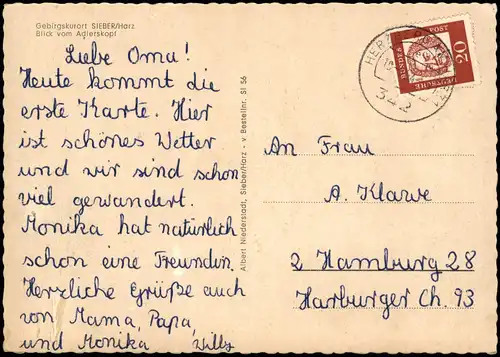 Gebirgskurort SIEBER/Harz
Blick vom Adlerskopf
Liebe Oma!
Heute kommt die
erste Karte. Hier
ist schönes Wetter
und wir sind schon
viel gewandert.
Monika hat natürlich
schon eine Freundin.
Herzliche Grüße auch
von Mama, Papa,
und Monika Willy
Albert Niederstadt, Sieber/Harz - v Bestellnr. SI 56
DEUTSCHE
BUNDESPOST
20
HERZ
342
An Frau
A. Klawe
2 Hamburg 28
Harburger Ch. 93